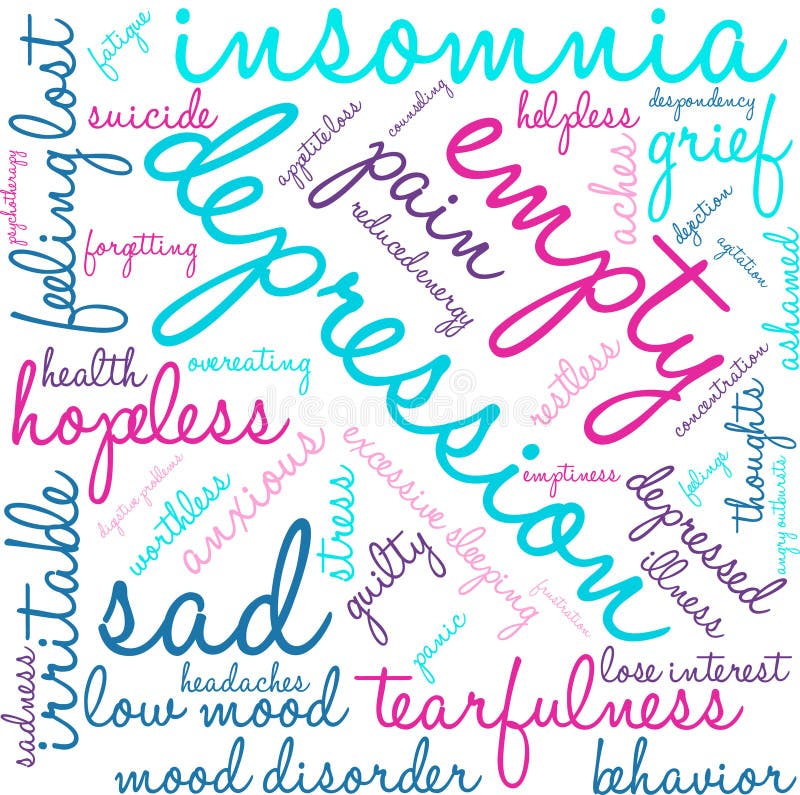 insomnia
fatigue
feeling lost
suicide
appetite loss
counseling
helpless
despondency
depression
pain
empty
aches
grief
psychotherapy
forgetting
reduced energy
dejection
agitation
ashamed
health
overeating
restless
concentration
hopeless
thoughts
digestive problems
worthless
anxious
stress
excessive sleeping
emptiness
feelings
depressed
angry outbursts
irritable
sad
guilty
panic
frustration
illness
sadness
headaches
lose interest
low mood
tearfulness
mood disorder
behavior
dreamstime